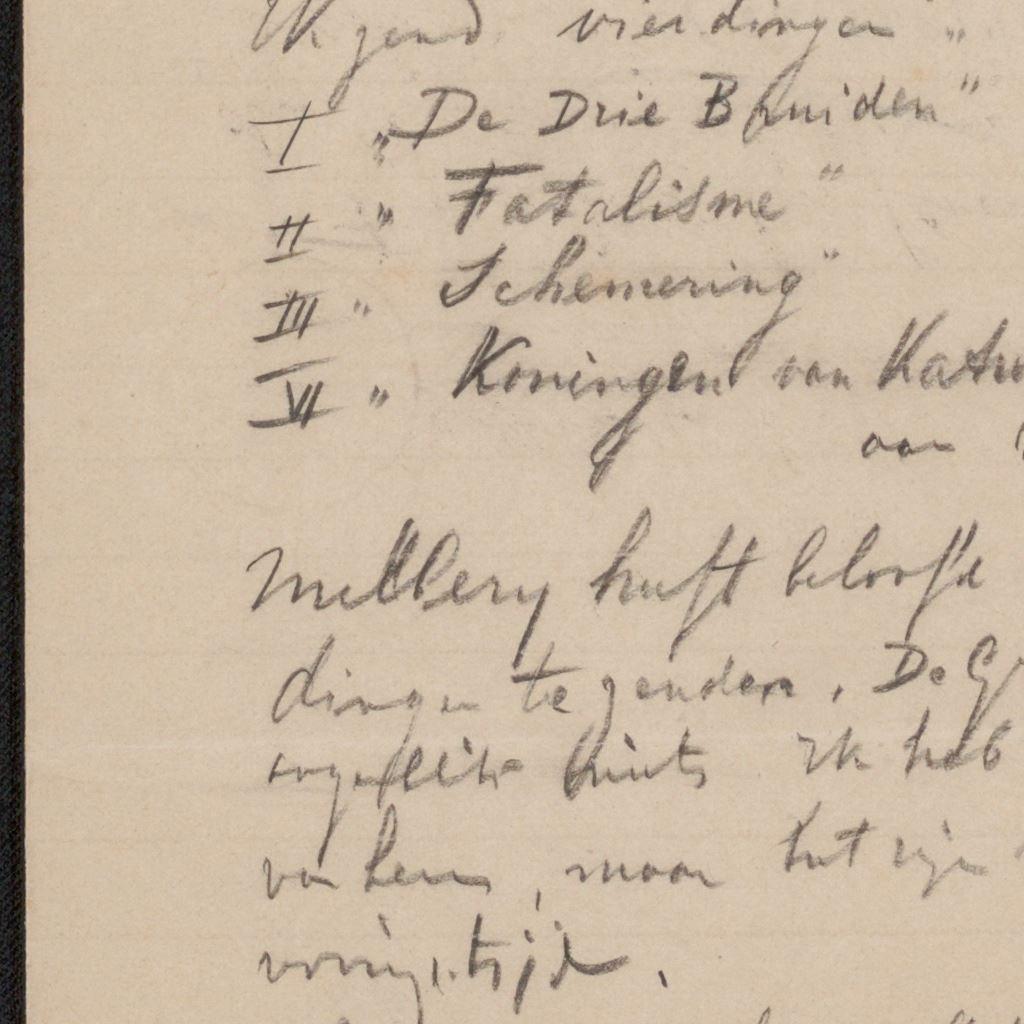 Ik zend vier dingen "
I „De Drie Bruiden"
II " Fatalisme "
III " Schemering"
VI " Koningen van Katw
aan
Mellery heeft beloofd
dingen te zenden. De G
niets Ik heb
van hem, maar het zijn
vroeg.tijd.